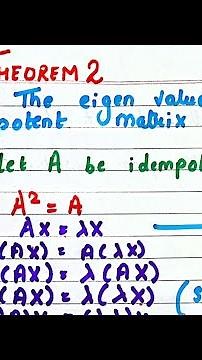 THEOREM 2
The eigen value
potent matrix
let A be idempot
A² = A
AX = λX
(AX) = A(λX)
(AX) = λ(AX)
(AX) = λ(λX)